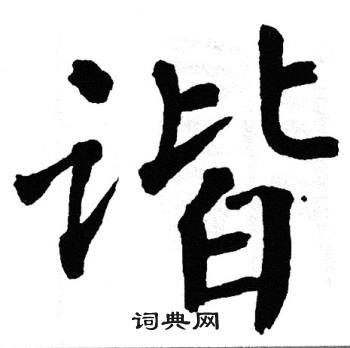 谐
词典网